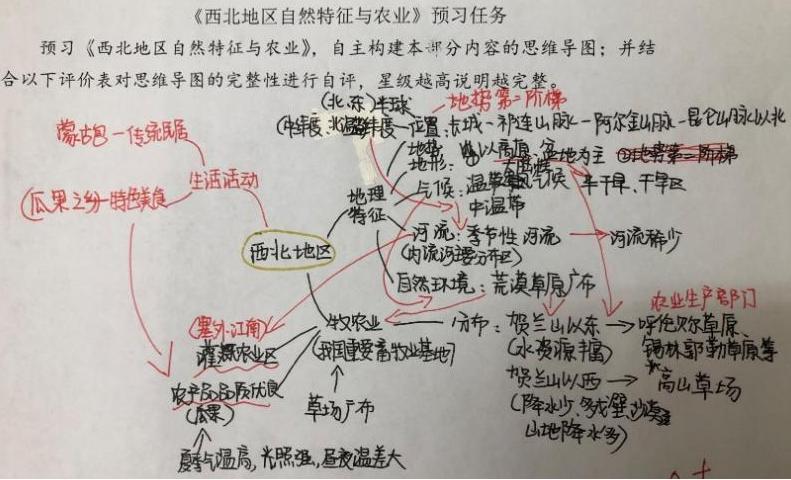 《西北地区自然特征与农业》预习任务
预习《西北地区自然特征与农业》，自主构建本部分内容的思维导图；并结
合以下评价表对思维导图的完整性进行自评，星级越高说明越完整。
(北、东)半球
地势第二阶梯
(中纬度、
位置：长城—祁连山脉—阿尔金山脉—昆仑山脉以北
地势：
地形：①以高原、盆地为主
气候：温带
气候 半干旱、干旱区
中温带
地理
特征
河流：季节性河流 → 河流稀少
(内流河主要分布区)
自然环境：荒漠草原广布
蒙古包—传统民居
生活活动
(瓜果之乡—特色美食
西北地区
(塞外江南)
灌溉农业区
农产品品质优良
(瓜果)
夏季气温高，光照强，昼夜温差大
牧农业
(我国重要畜牧业基地)
草场广布
农业生产部门
分布：贺兰山以东 → 呼伦贝尔草原、
(水资源丰富)
锡林郭勒草原等
贺兰山以西 → 高山草场
(降水少、多戈壁、沙漠
山地降水多)